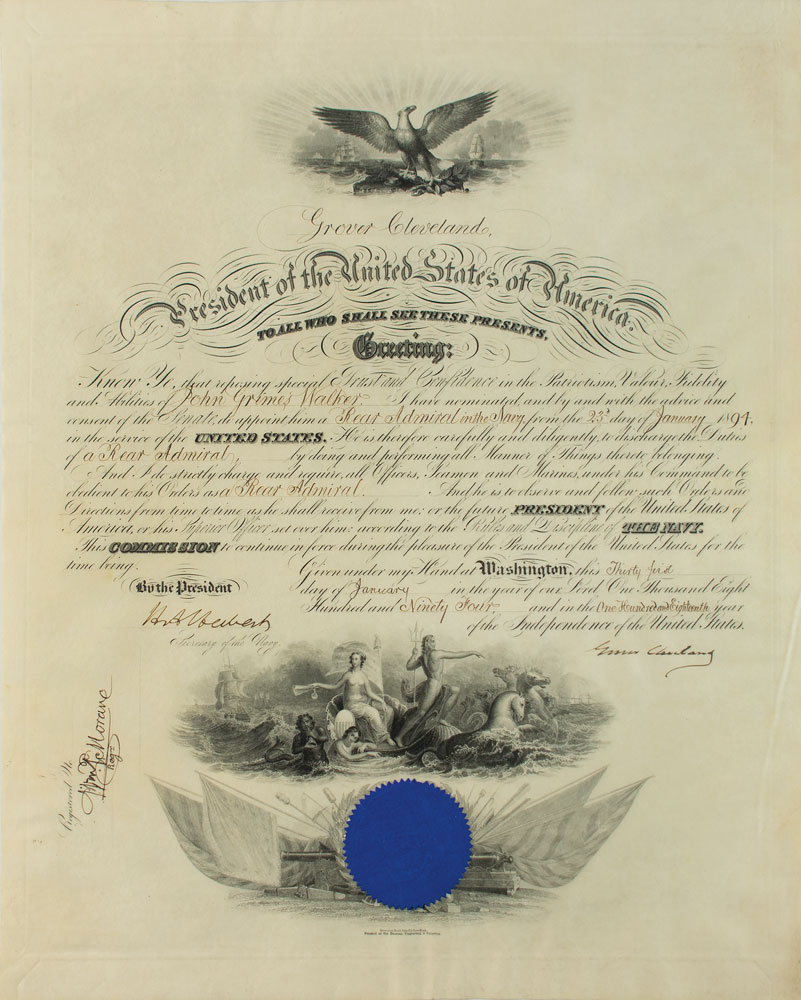 Grover Cleveland,
President of the United States of America.
TO ALL WHO SHALL SEE THESE PRESENTS,
Greeting:
Know Ye, that reposing special Trust and Confidence in the Patriotism, Valour, Fidelity
and Abilities of John Grimes Walker I have nominated, and by and with the advice and
consent of the Senate, do appoint him a Rear Admiral in the Navy, from the 23d day of January 1894,
in the service of the UNITED STATES. He is therefore carefully and diligently to discharge the Duties
of a Rear Admiral, by doing and performing all Manner of Things thereto belonging.
And I do strictly charge and require all Officers, Seamen and Marines, under his Command to be
obedient to his Orders as a Rear Admiral. And he is to observe and follow such Orders and
Directions from time to time as he shall receive from me, or the future PRESIDENT of the United States of
America, or his Superior Officer set over him, according to the Rules and Discipline of THE NAVY.
This COMMISSION to continue in force during the pleasure of the President of the United States for the
time being.
Given under my Hand at Washington, this Thirty first
By the President
day of January in the year of our Lord One Thousand Eight
Hundred and Ninety Four, and in the One Hundred and Eighteenth year
of the Independence of the United States.
H A Herbert
Secretary of the Navy.
Grover Cleveland
Registered No.